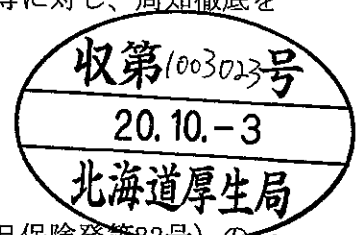 等に対し、周知徹底を
収第1003023号
20.10.-3
北海道厚生局
日保険発第82号）の